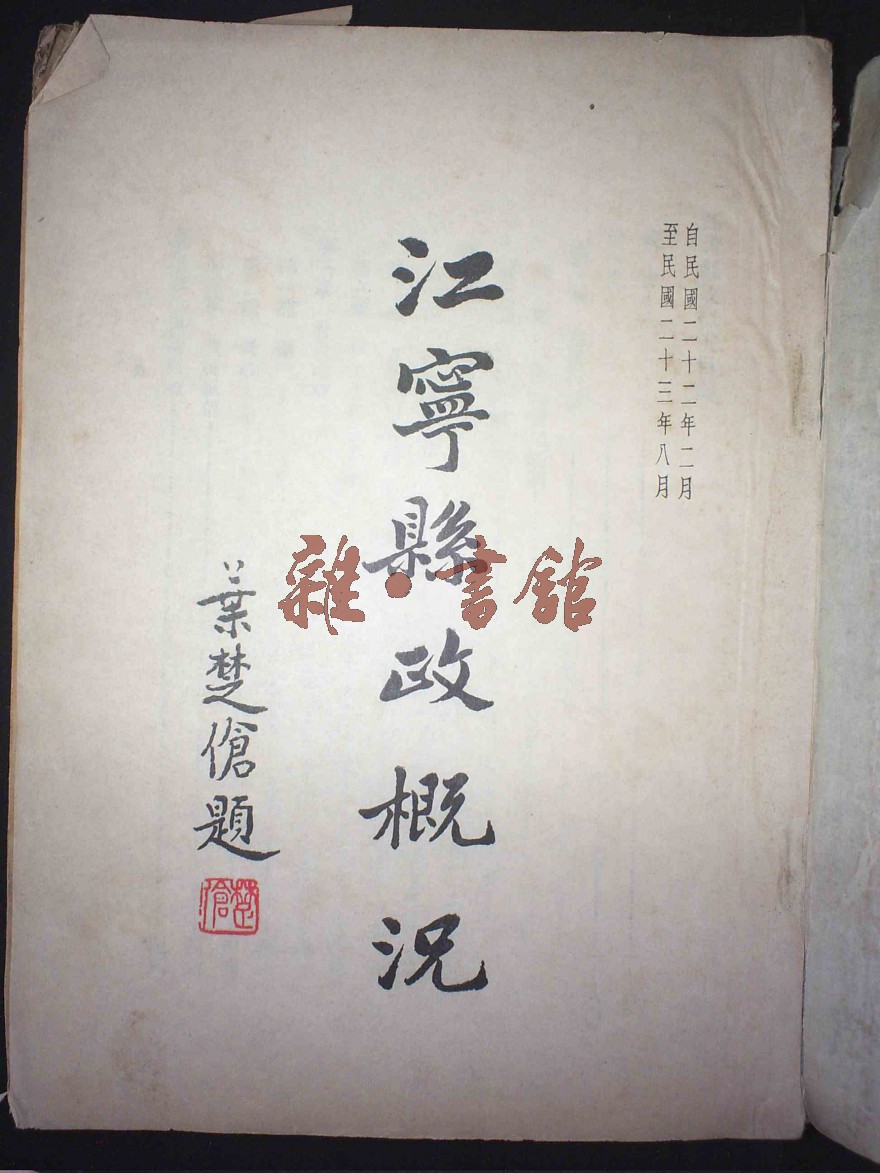 自民國二十二年二月
至民國二十三年八月
江寧縣政概況
葉楚傖題
楚傖
雜·書館